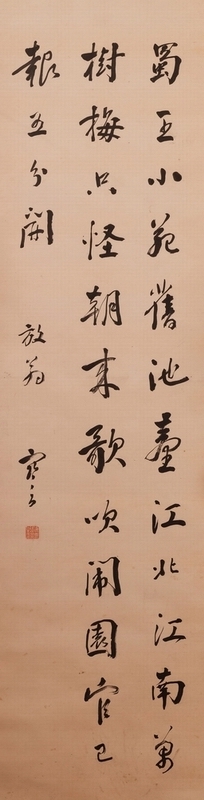 蜀王小苑舊池臺江北江南萬
樹梅只怪朝來歌吹鬧園官已
報五分開
放翁